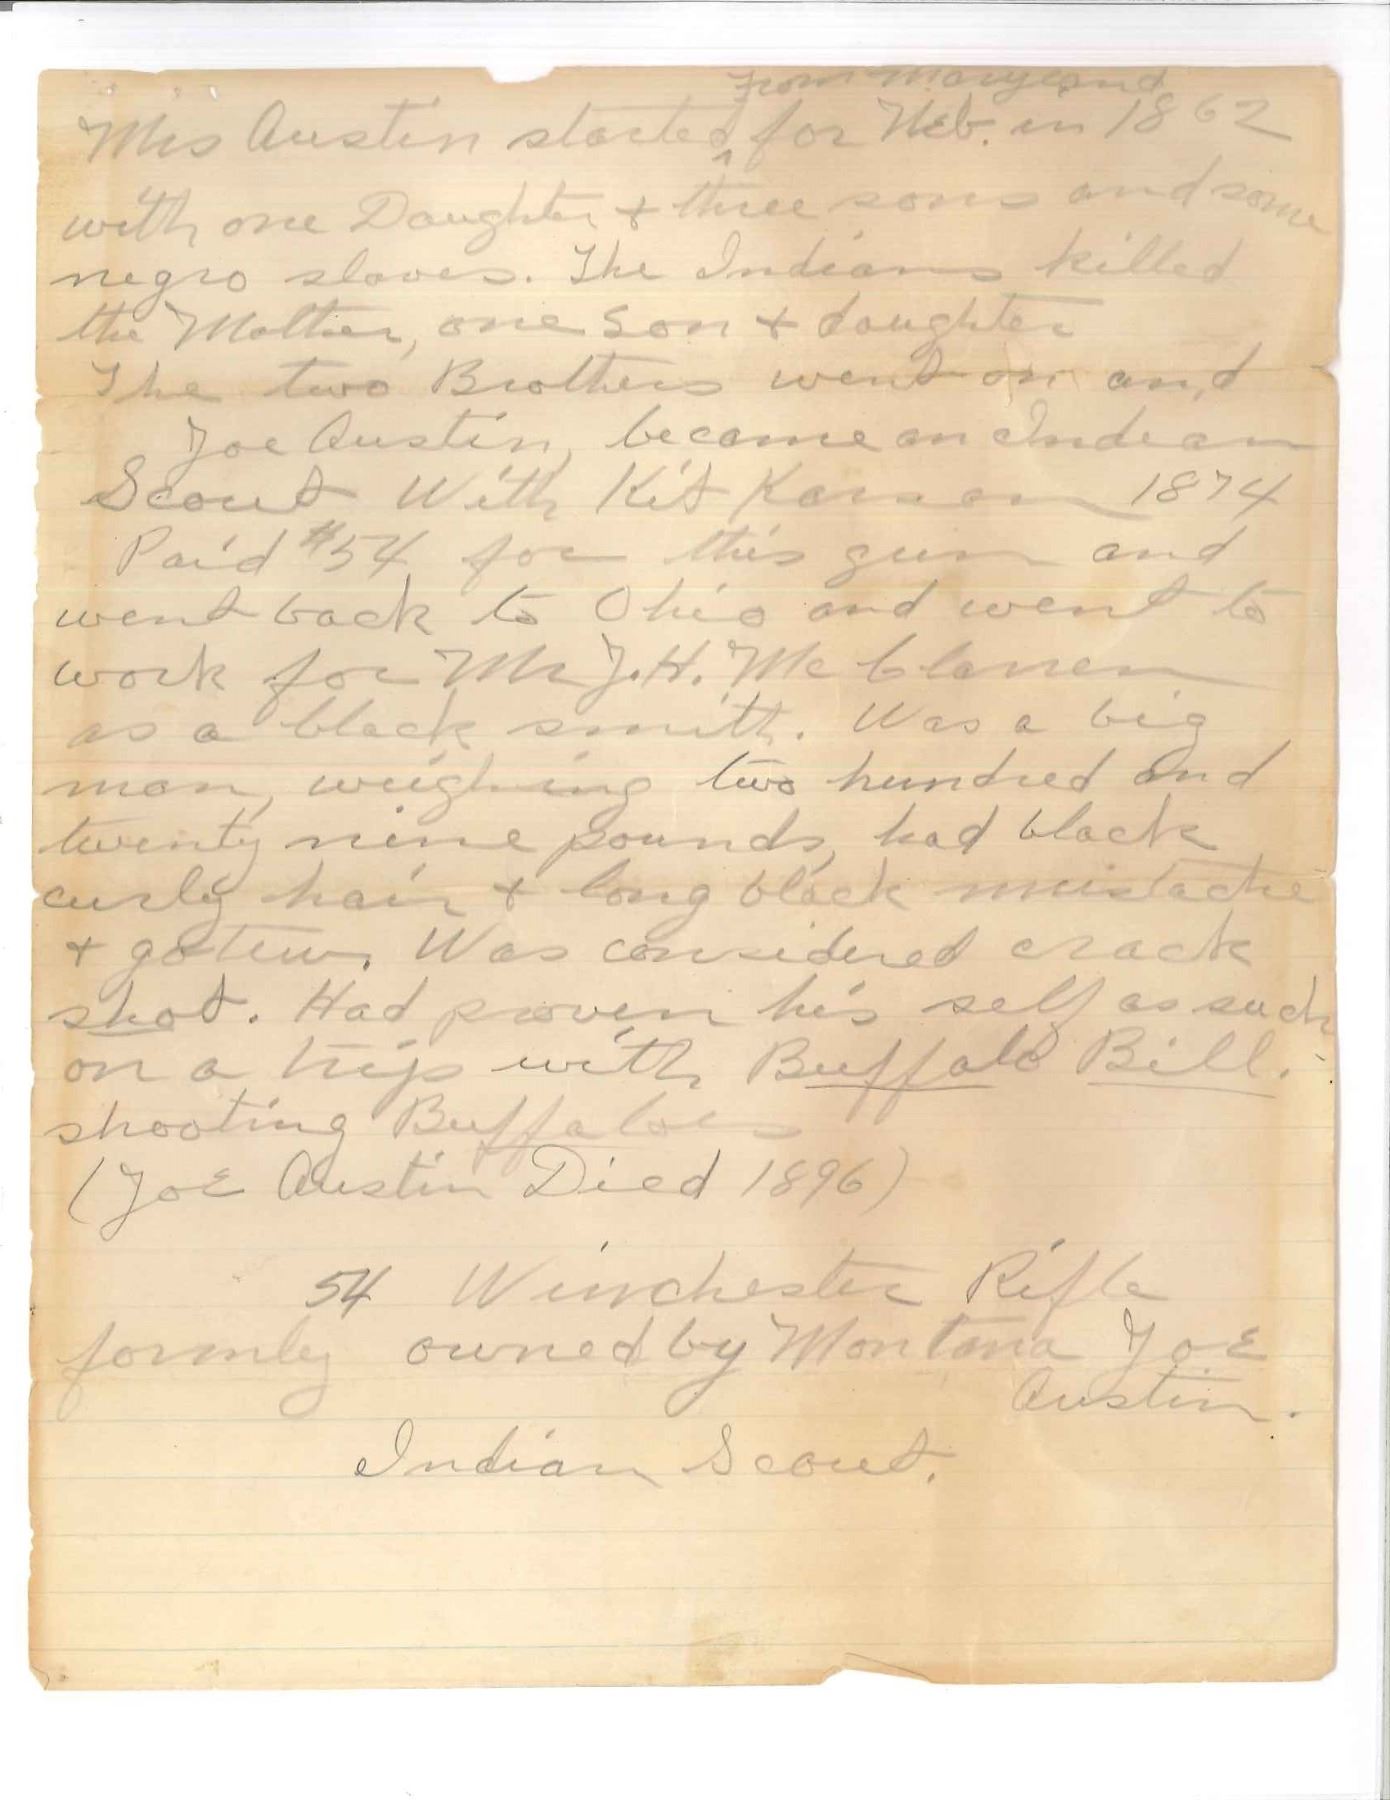 From Maryland
Mrs Austin started ^ for Neb. in 1862
with one Daughter + three sons and some
negro slaves. The Indians killed
the Mother, one Son + daughter
The two Brothers went on and
Joe Austin, became an Indian
Scout With Kit Karson 1874
Paid $54 for this gun and
went back to Ohio and went to
work for Mr J. H. Mc Clarren
as a black smith. Was a big
man, weighing two hundred and
twenty nine pounds, had black
curly hair + long black mustache
+ . Was considered crack
shot. Had proven his self as such
on a trip with Buffalo Bill.
shooting Buffaloes
(Joe Austin Died 1896)
54 Winchester Rifle
formly owned by Montana Joe
Austin.
Indian Scout.